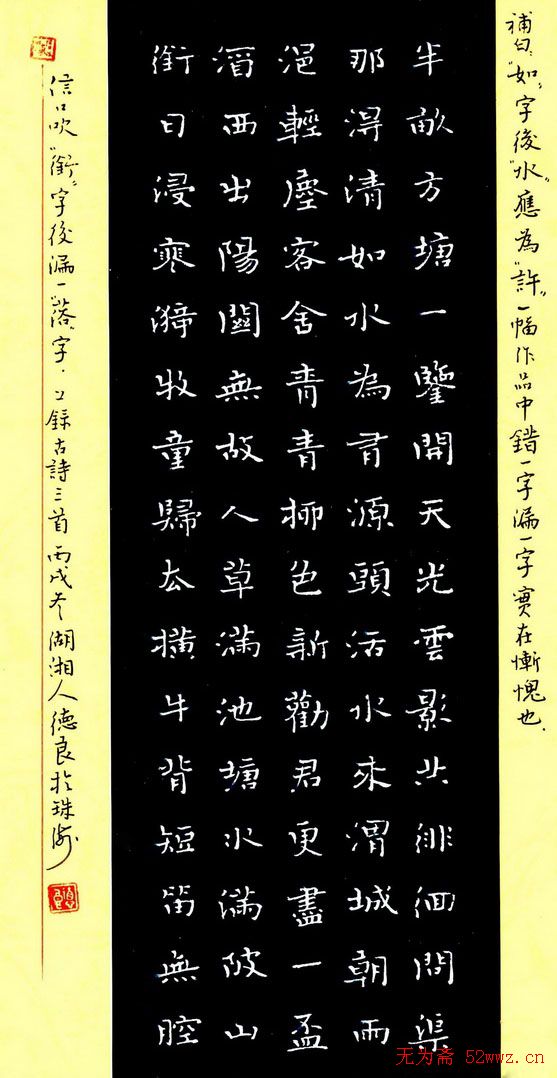 補白："如"字後"水"應為"許"一幅作品中錯一字漏一字實在慚愧也.
半畝方塘一鑒開天光雲影共徘徊問渠
那得清如水為有源頭活水來渭城朝雨
浥輕塵客舍青青柳色新勸君更盡一盃
酒西出陽關無故人草滿池塘水滿陂山
銜日浸寒漪牧童歸去橫牛背短笛無腔
信口吹"銜"字後漏一"落"字.録古詩三首丙戌冬湖湘人德良於珠海
无为斋 52wwz.cn